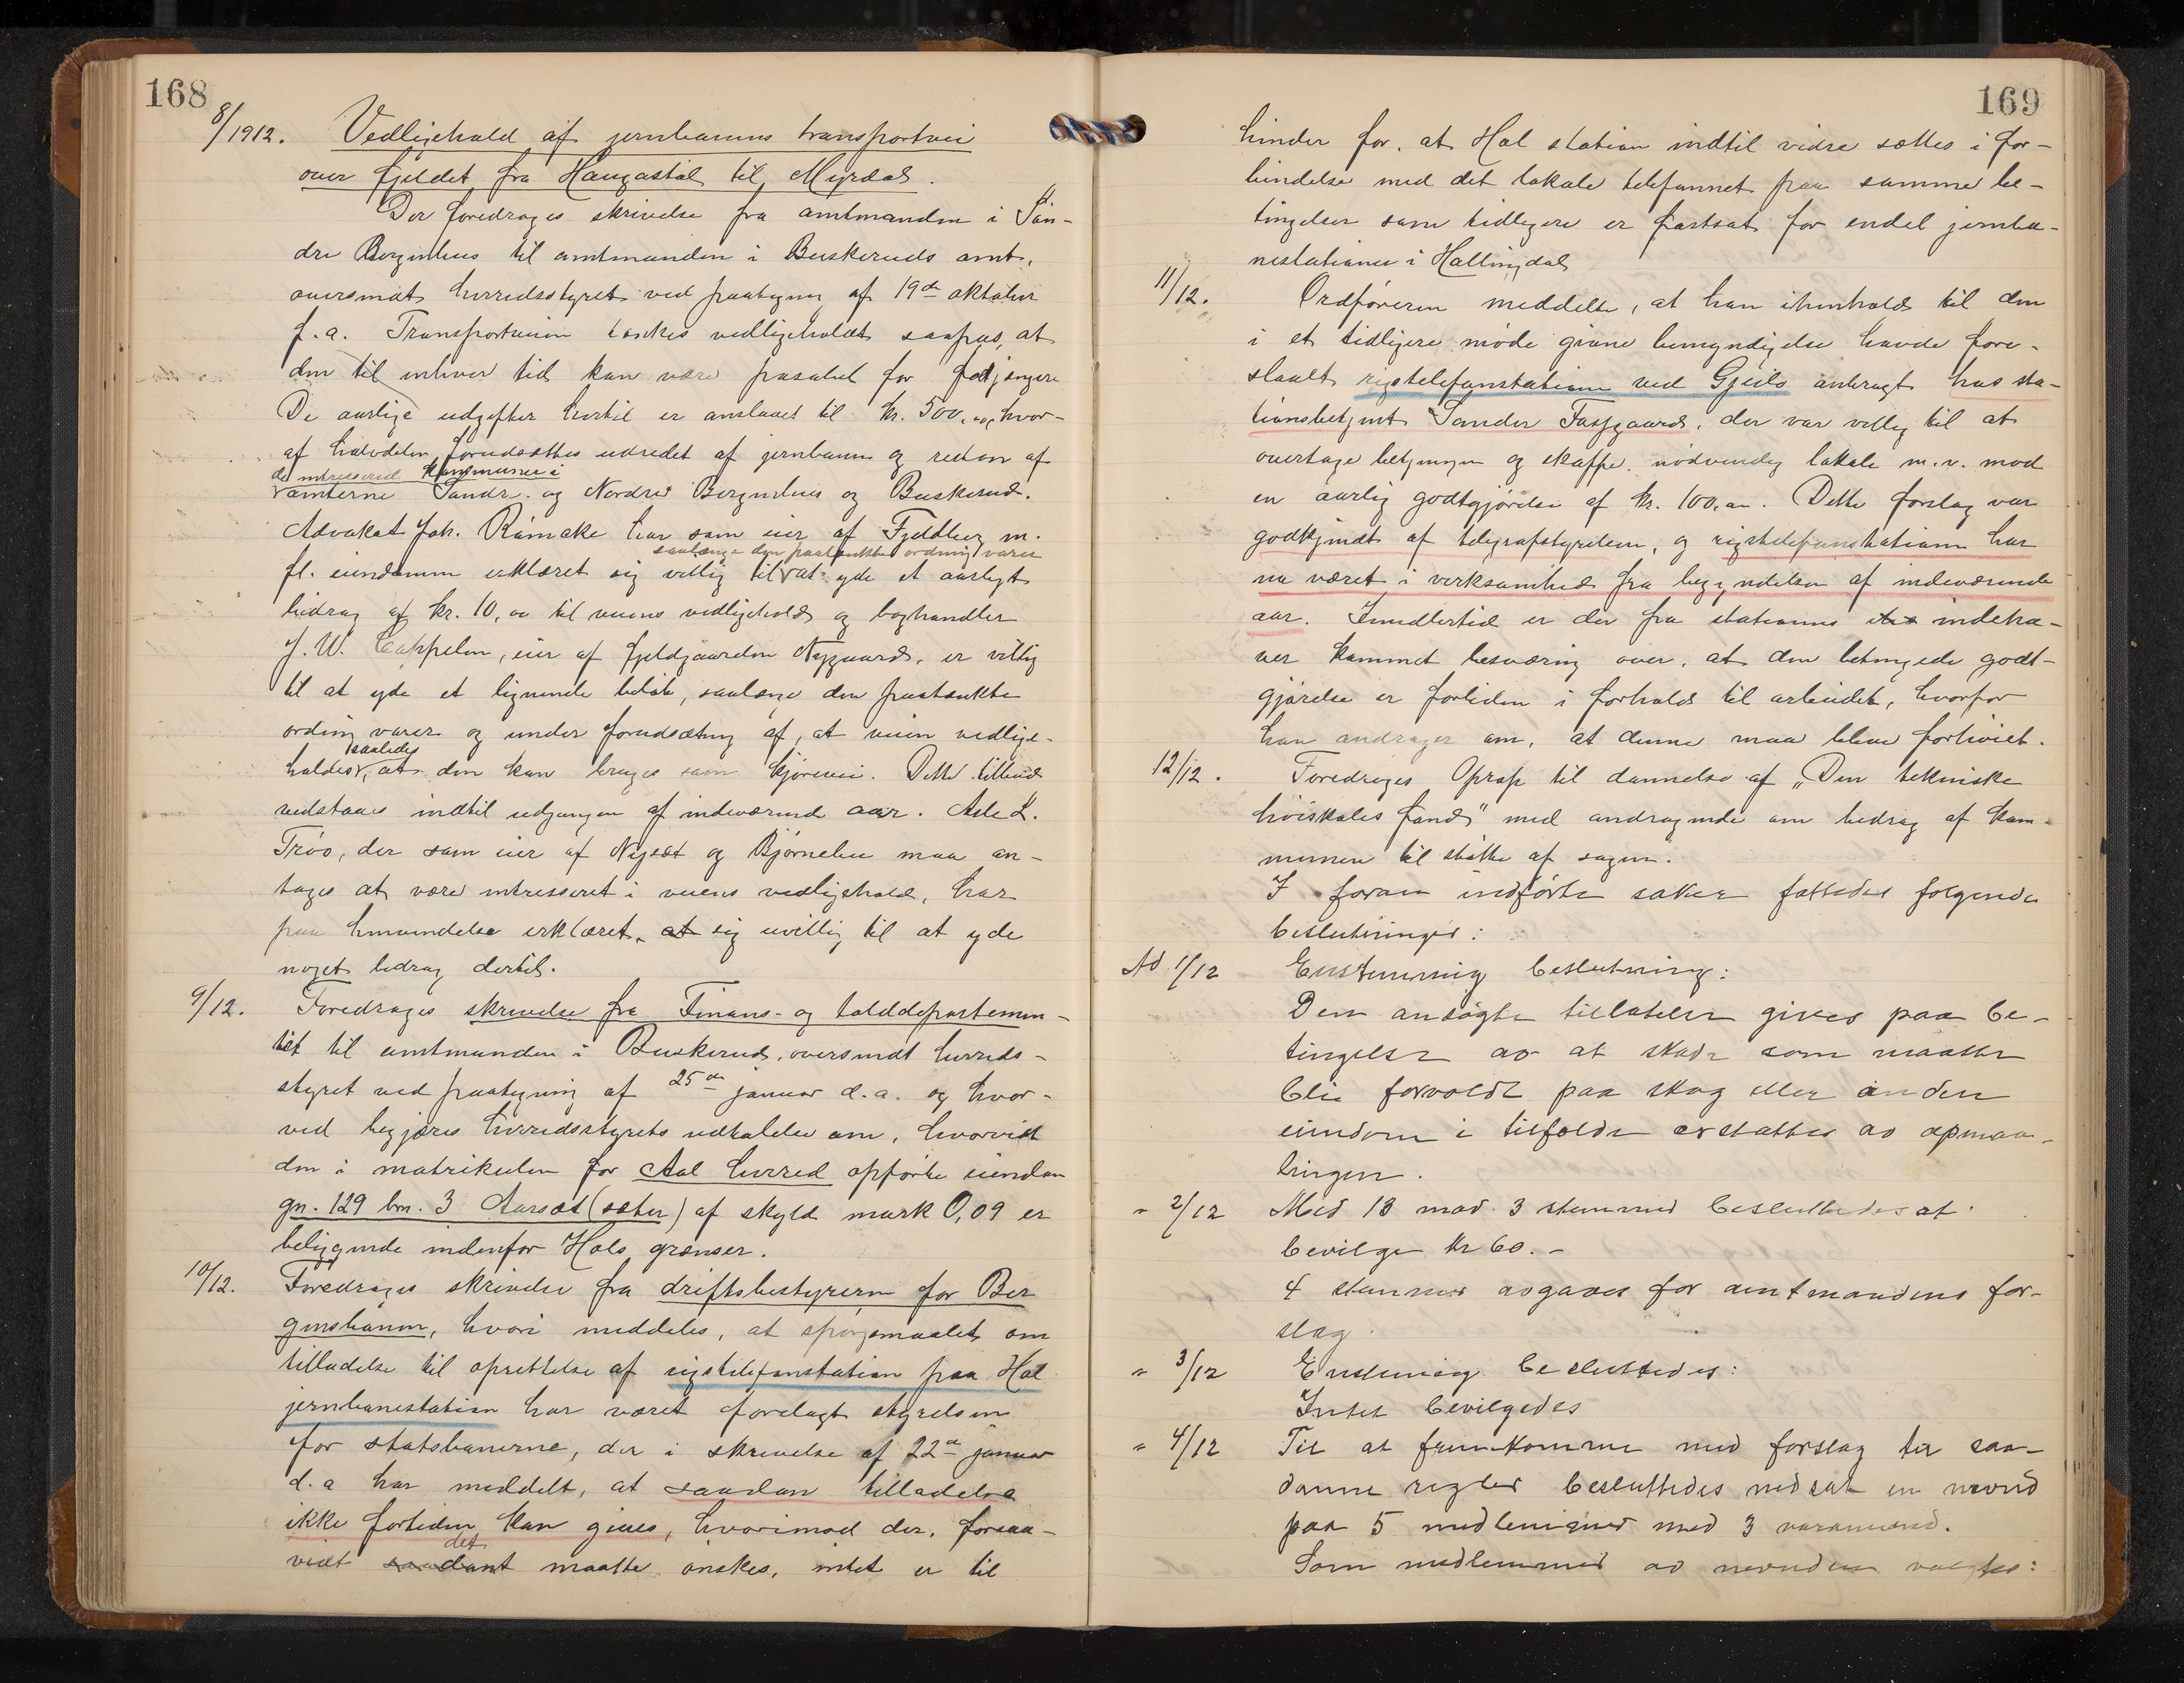 168
8/1912. Vedligehold af jernbanens transportvei
over fjeldet fra Haugastøl til Myrdal.
Der foredrages skrivelse fra amtmanden i Søn-
dre Bergenhus til amtmanden i Buskeruds amt,
oversendt herredsstyret ved paategning af 19de oktober
f.a. Transportveien tænkes vedligeholdt saapas, at
den til enhver tid kan være passabel for fotgjængere
De aarlige udgifter hertil er anslaaet til kr. 500,00, hvor-
af halvdelen forudsættes udredet af jernbanen og resten af
de intresserede kommuner i
amterne Søndre og Nordre Bergenhus og Buskerud.
Advokat Joh. Rämcke har som eier af Fjeldberg m.
saalænge den paatænkte ordning varer
fl. eiendomme erklæret sig villig til at yde et aarligt
bidrag af kr. 10,00 til veiens vedligehold og boghandler
J. W. Cappelen, eier af fjeldgaarden Nygaard, er villig
til at yde et lignende beløb, saalænge den paatænkte
ordning varer og under forudsætning af, at veien vedlige-
saaledes
holdes, at den kan bruges som kjørevei. Dette tilbud
vedstaaes indtil udgangen af indeværende aar. Asle L.
Trøo, der som eier af Nysæt og Bjørnebu maa an-
tages at være intresseret i veiens vedligehold, har
paa henvendelse erklæret at sig uvillig til at yde
noget bidrag dertil.
9/12. Foredrages skrivelse fra Finans- og tolddepartemen-
tet til amtmanden i Buskerud, oversendt herreds-
styret ved paategning af 25de januar d.a. og hvor-
ved begjæres herredsstyrets udtalelse om, hvorvidt
den i matrikulen for Aal herred opførte eiendom
gn. 129 bn. 3 Aarsæt (sæter) af skyld mark 0,09 er
beliggende indenfor Hols grænser.
10/12. Foredrages skrivelse fra driftsbestyreren for Ber
gensbanen, hvori meddeles, at spørgsmaalet om
tilladelse til oprettelse af rigstelefonstation paa Hol
jernbanestation har været forelagt styrelsen
for statsbanerne, der i skrivelse af 22de januar
d.a har meddelt, at saadan tilladelse
ikke fortiden kan gives, hvorimod der, forsaa-
det
vidt saadant maatte ønskes, intet er til
169
hinder for, at Hol station indtil vidre sættes i for-
bindelse med det lokale telefonnet paa samme be-
tingelser som tidligere er fastsat for endel jernba-
nestationer i Hallingdal
11/12. Ordføreren meddelte, at han ihenhold til den
i et tidligere møde givne bemyndigelse havde fore-
slaalt rigstelefonstationen ved Gjeilo anbragt hos sta-
tionsbetjent Sander Fossgaard, der var villig til at
overtage betjeningen og skaffe nødvendig lokale m.v. mod
en aarlig godtgjørelse af kr. 100,00. Dette forslag var
godkjendt af telegrafstyrelsen, og rigstelefonstationen har
nu været i virksomhed fra begyndelsen af indeværende
aar. Imidlertid er der fra stationens indeha-
ver kommet besværing over, at den betingede godt-
gjørelse er forliden i forhold til arbeidet, hvorfor
han andrager om, at denne maa blive forhøiet.
12/12. Foredrages Oprop til dannelse af „Den tekniske
høiskoles fond" med andragende om bidrag af kom-
munen til støtte af sagen.
I foran indførte saker fattedes folgende
beslutninger:
Ad 1/12 Enstemmig beslutning:
Den ansøgte tillatelse gives paa be-
tingelse av at skade som maatte
bli forvoldt paa skog eller anden
eiendom i tilfælde erstattes av opmaa-
lingen.
" 2/12 Med 13 mod 3 stemmer besluttedes at
bevilge kr 60.-
4 stemmer avgaves for amtmandens for-
slag.
" 3/12 Enstemmig besluttedes:
Intet bevilgedes
" 4/12 Til at fremkomme med forslag til saa-
danne regler besluttedes nedsat en nevnd
paa 5 medlemmer med 3 varamænd.
Som medlemmer av nevnden valgtes: